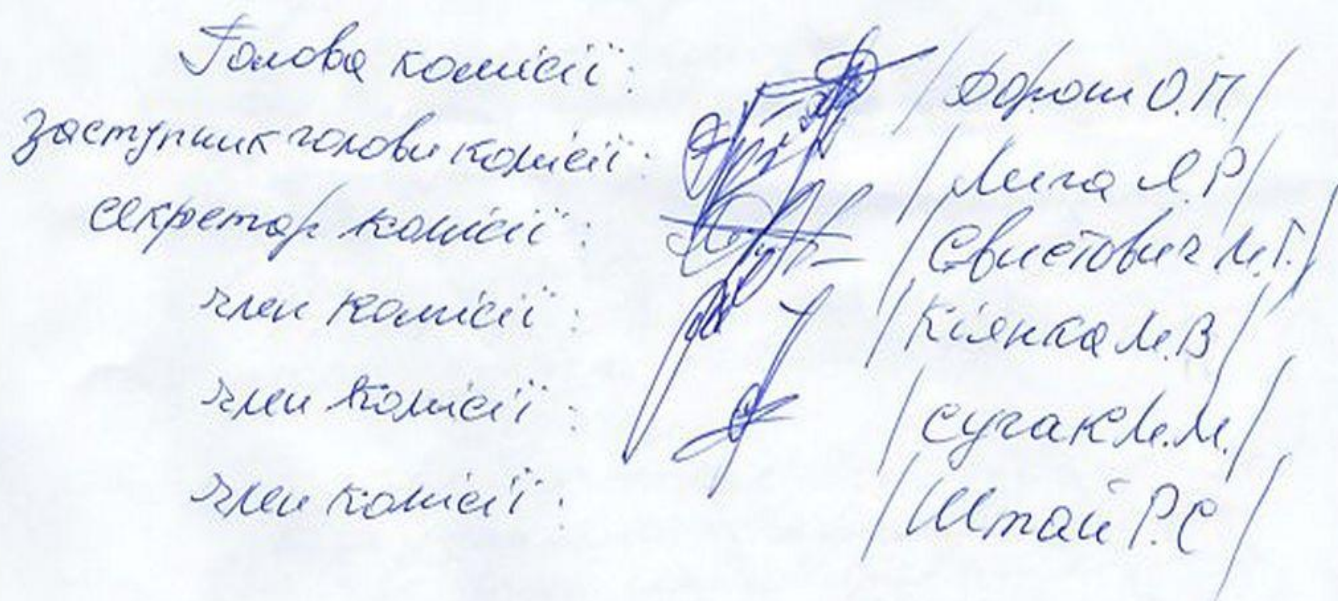 Голова комісії: /Дорош О.П./
Заступник голови комісії: /Лига Л.Р/
Секретар комісії: /Свистович М.Г./
член комісії: /Кіянка М.В/
член комісії: /Сугак М.М./
член комісії: /Штай Р.С/